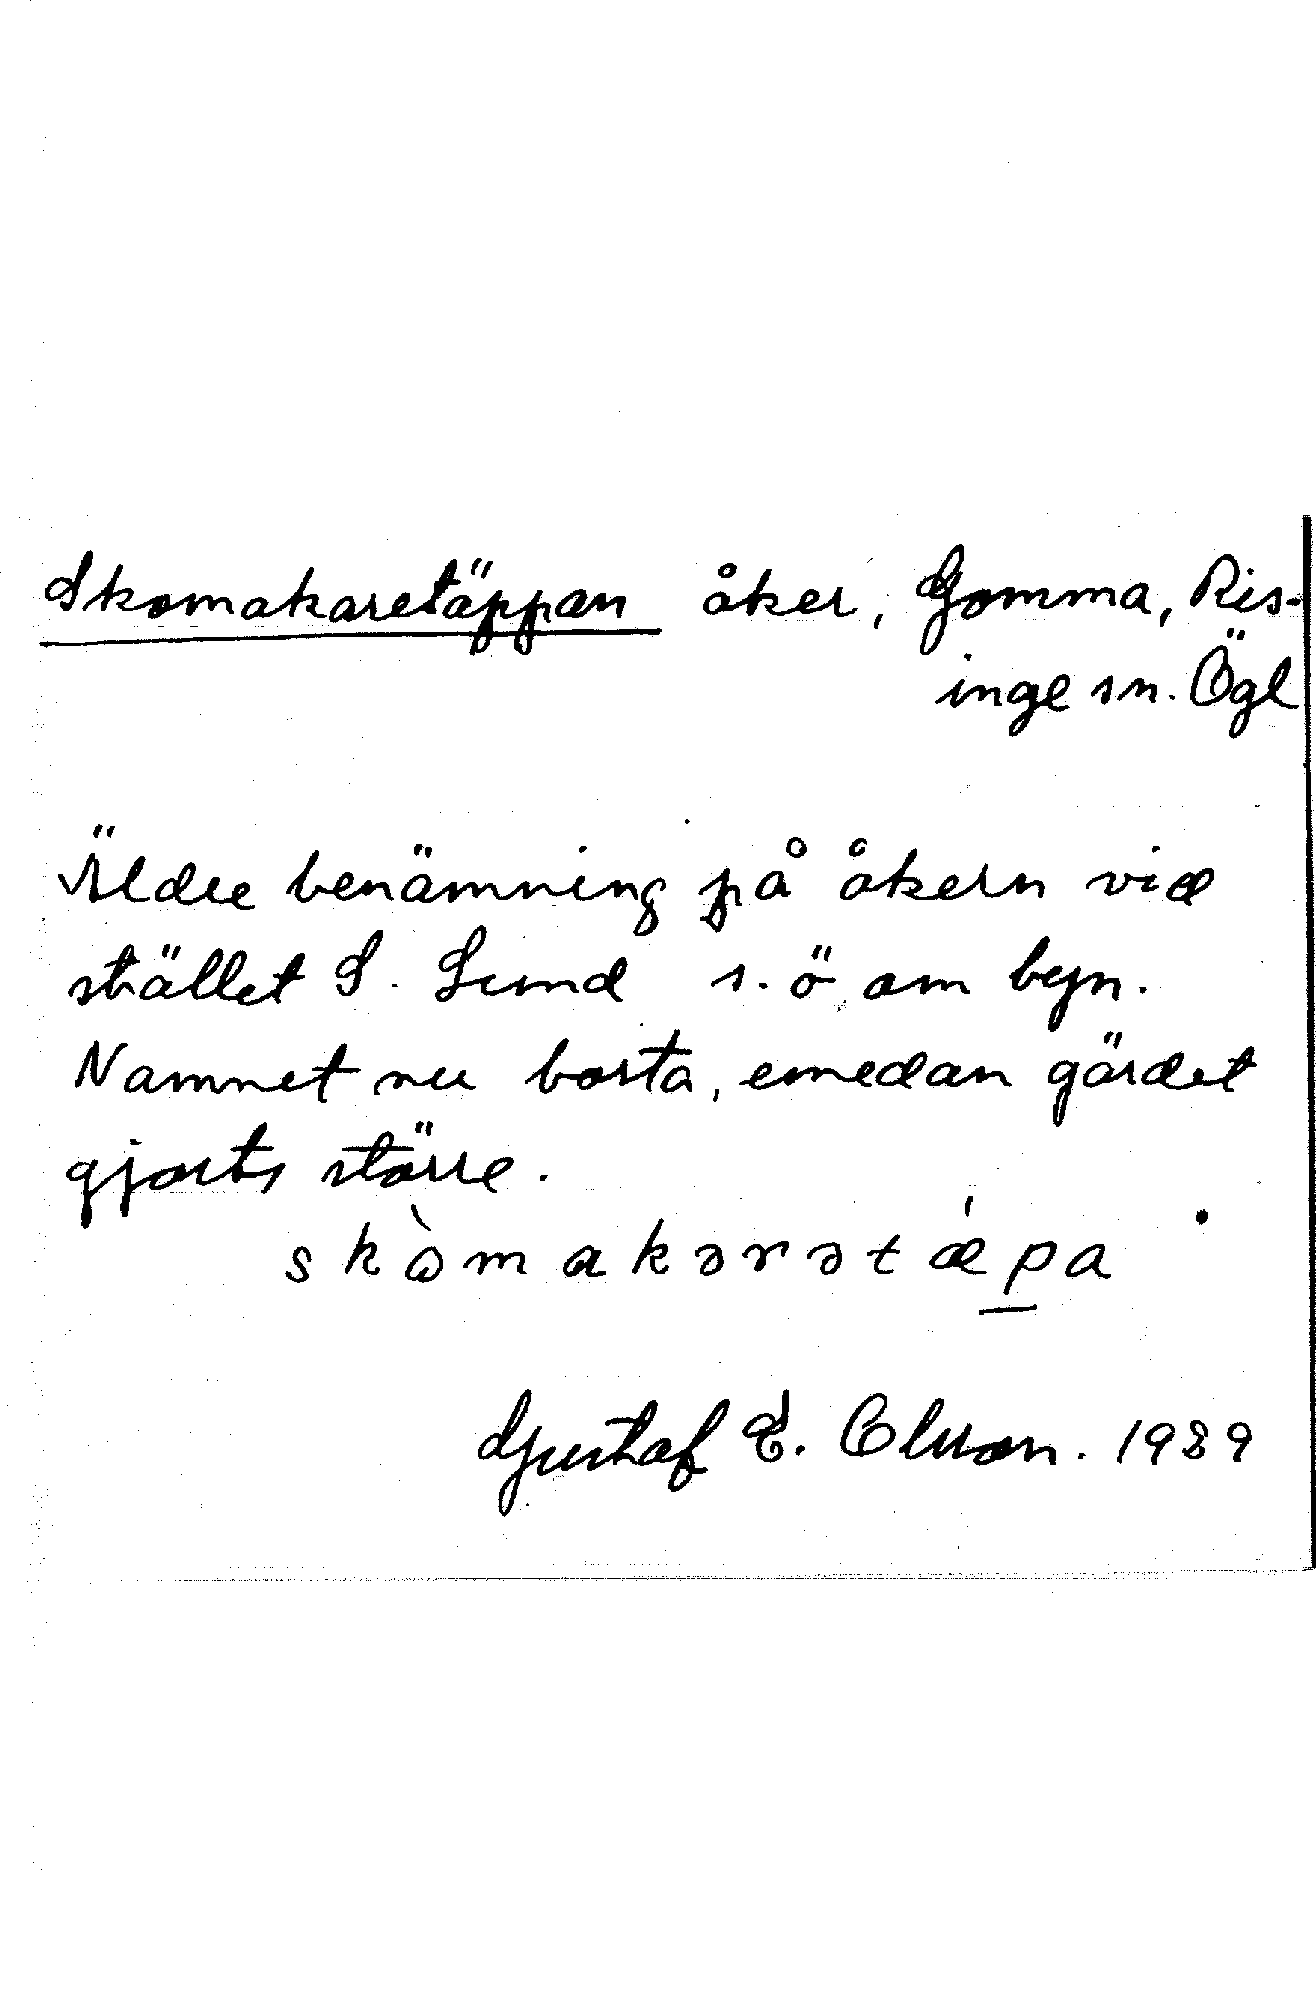 Skomakaretäppan åker, Gomma, Ris-
inge sn. Ögl
Äldre benämning på åkern vid
stället S. Lund s.ö om byn.
Namnet nu borta, emedan gärdet
gjorts större.
skòmakərətǽpa
Gustaf E. Olsson. 1989